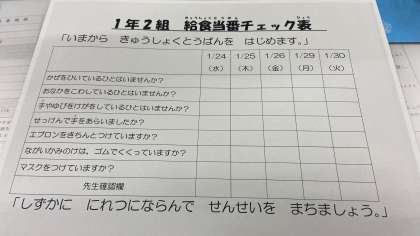 １年２組　給食当番チェック表
「いまから　きゅうしょくとうばんを　はじめます。」
1/24 1/25 1/26 1/29 1/30
（水） （木） （金） （月） （火）
かぜをひいているひとはいませんか？
おなかをこわしているひとはいませんか？
手やゆびをけがをしているひとはいませんか？
せっけんで手をあらいましたか？
エプロンをきちんとつけていますか？
ながいかみのけは、ゴムでくくっていますか？
マスクをつけていますか？
先生確認欄
「しずかに　にれつにならんで　せんせいを　まちましょう。」